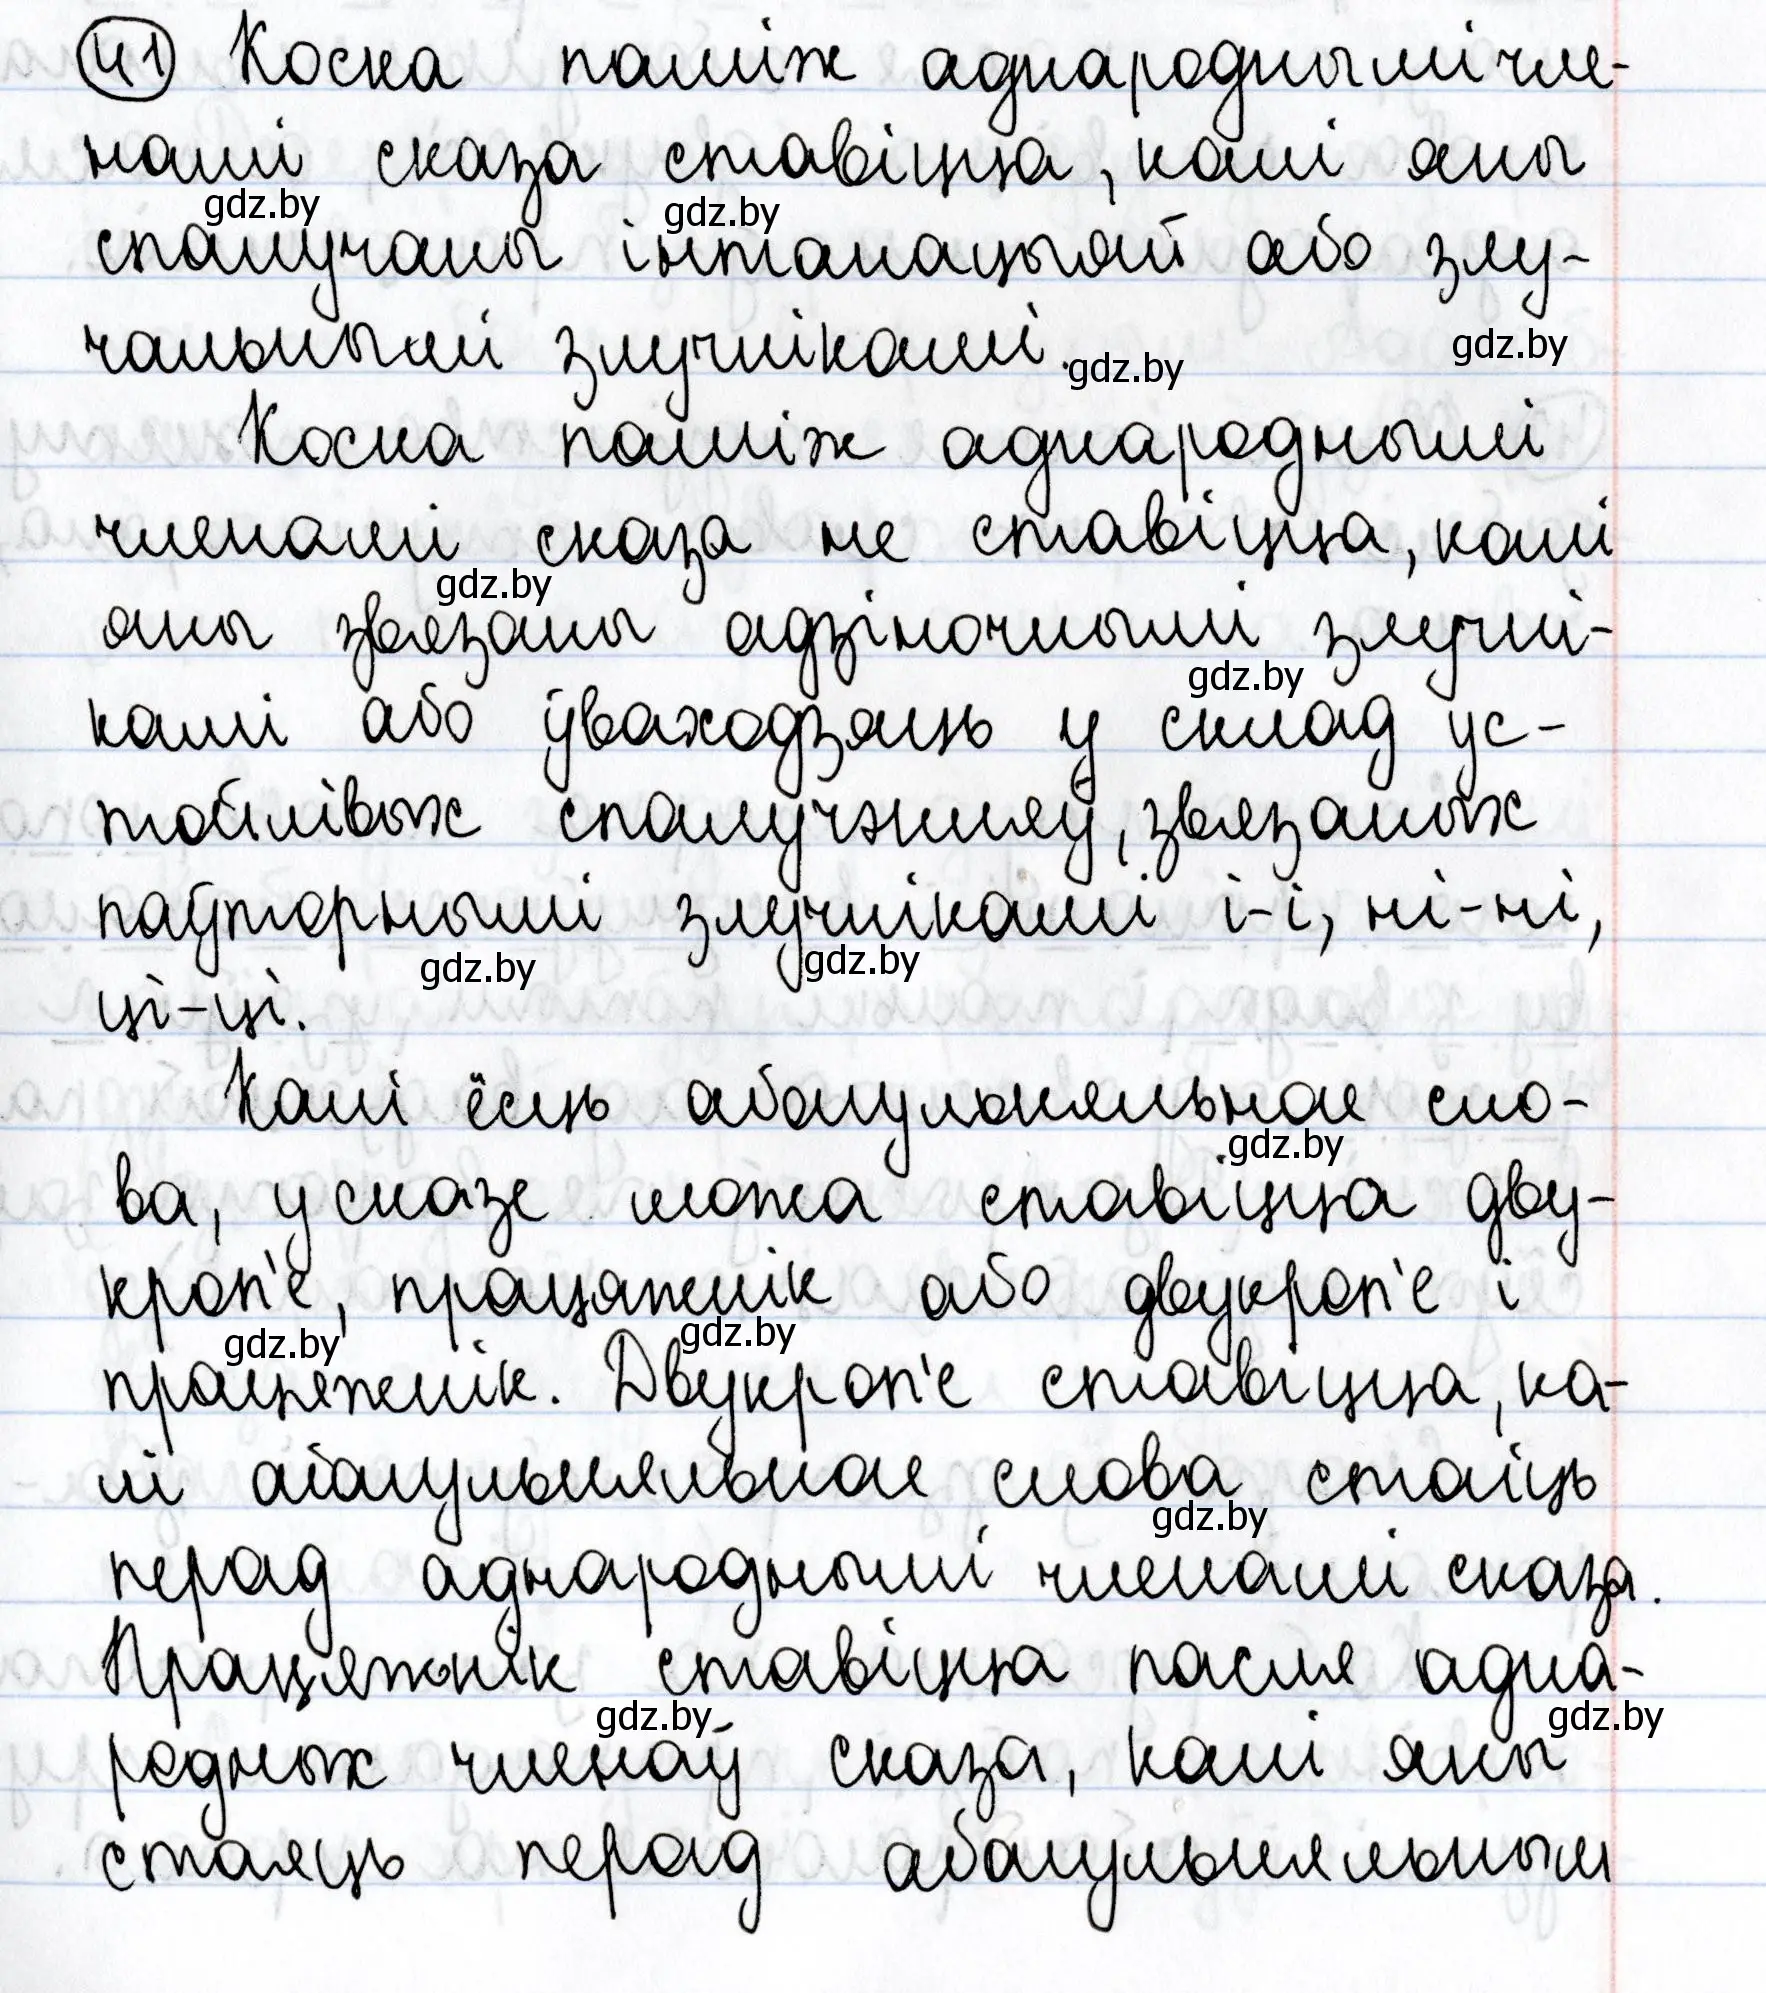 41 Коска паміж аднароднымі чле-
намі сказа ставіцца, калі яны
спалучаны інтанацыяй або злу-
чальнымі злучнікамі.
Коска паміж аднароднымі
членамі сказа не ставіцца, калі
яны звязаны адзіночнымі злучні-
камі або ўваходзяць у склад ус-
тойлівых спалучэнняў, звязаных
паўторнымі злучнікамі і-і, ні-ні,
ці-ці.
Калі ёсць абагульняльнае сло-
ва, у сказе можа ставіцца дву-
кроп'е, працяжнік або двукроп'е і
працяжнік. Двукроп'е ставіцца, ка-
лі абагульняльнае слова стаіць
перад аднароднымі членамі сказа.
Працяжнік ставіцца пасля адна-
родных членаў сказа, калі яны
стаяць перад абагульняльным
gdz.by
gdz.by
gdz.by
gdz.by
gdz.by
gdz.by
gdz.by
gdz.by
gdz.by
gdz.by
gdz.by
gdz.by
gdz.by
gdz.by